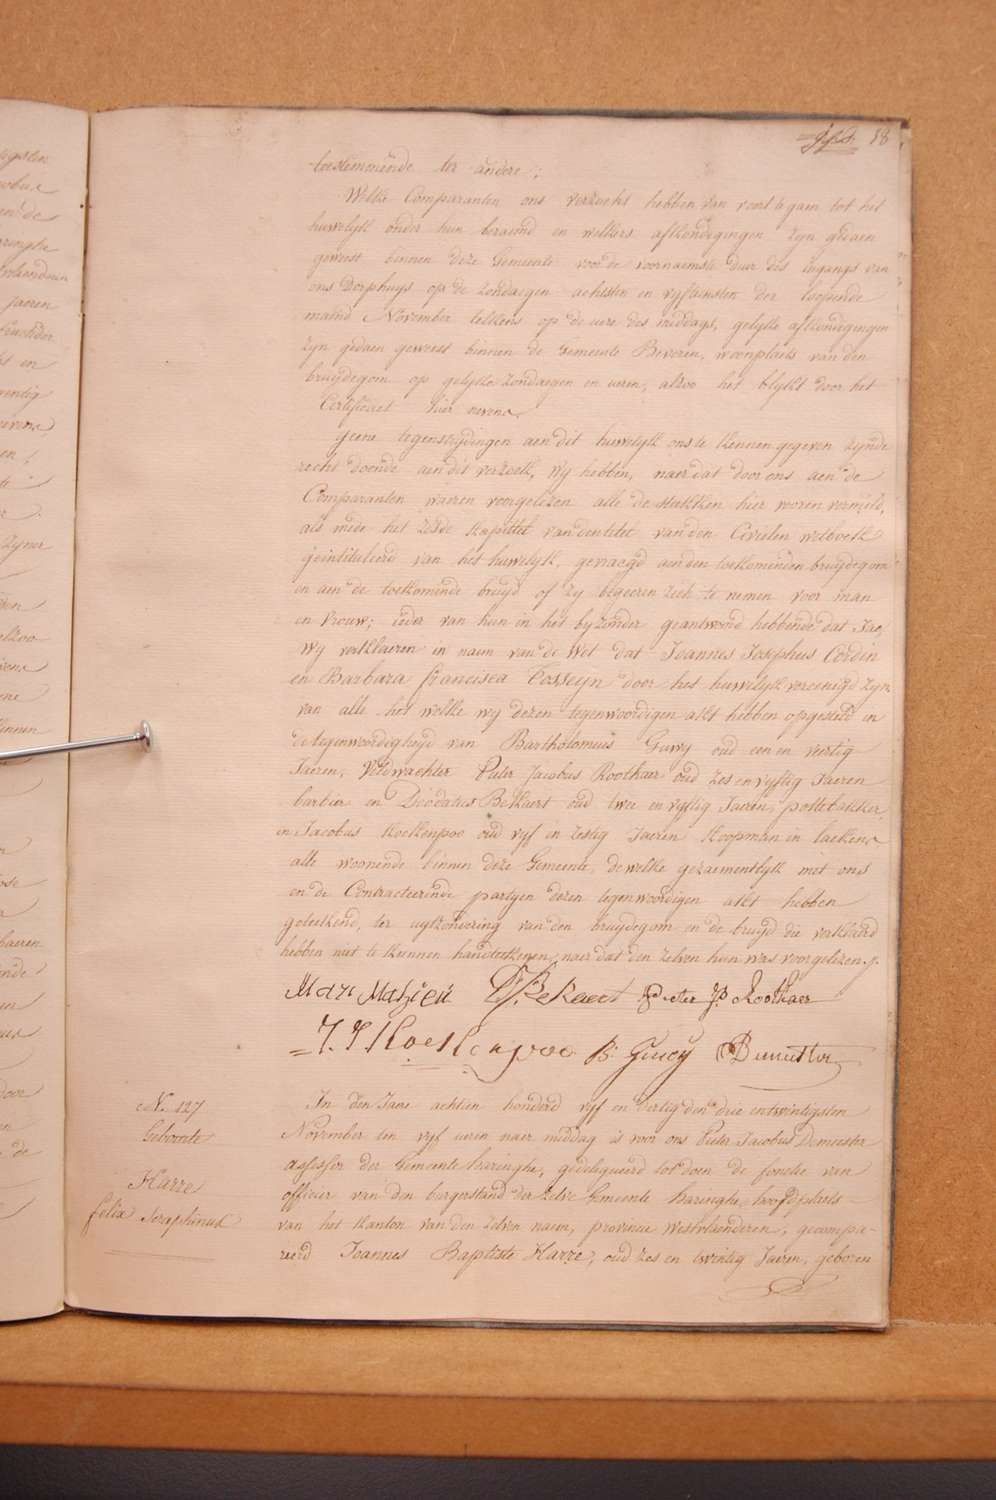 58
toestemmende ter andere;
Welke Comparanten ons verzocht hebben van voort te gaen tot het
huwelyk onder hun beraemd en welkers afkondegingen zyn gedaen
geweest binnen deze Gemeente voor de voornaemste deur des ingangs van
ons Dorphuys op de zondaegen achtsten en vyftiensten der loopende
maend November telkens op de uere des middags, gelyke afkondegingen
zyn gedaen geweest binnen de Gemeente Beveren, woonplaets van den
bruydegom op gelyke zondaegen en ueren, alzoo het blykt door het
Certificaet hier nevens
geene tegenstrydingen aen dit huwelyk ons te kennen gegeven zynde
recht doende aen dit verzoek, wy hebben, naer dat door ons aen de
Comparanten waeren voorgelezen alle de stukken hier vooren vermeld,
als mede het zesde kapittel van den titel van den Civielen wetboek
geintituleerd van het huwelyk, gevraegd aen den toekomenden bruydegom
en aen de toekomende bruyd of zy begeeren zich te nemen voor man
en vrouw; ieder van hun in het byzonder geantwoord hebbende dat Jae,
wy verklaeren in naem van de Wet dat Joannes Josephus Cordin
en Barbara francisca Cosseyn door het huwelyk vereenigd zyn,
van alle het welke wy dezen tegenwoordigen akt hebben opgesteld in
de tegenwoordigheyd van Bartholomeus Guwy oud een en veertig
Jaeren, Veldwachter Pieter Jacobus Roothaer oud zes en vyftig Jaeren
barbier en Diodatus Bekaert oud twee en vyftig Jaeren, pottebakker
en Jacobus Koekenpoo oud vyf en zestig Jaeren Koopman in laekens
alle woonende binnen deze Gemeente, de welke gezaementlyk met ons
en de Contracteerende partyen dezen tegenwoordigen akt hebben
geteekend, ter uytzondering van den bruydegom en de bruyd die verklaerd
hebben niet te kunnen handteekenen, naer dat den zelven hun was voorgelezen
Mari Mahieu Bekaert Pieter J. Roothaer
J. J Koekenpoo B: Guwy Demeester
N. 127
Geboorte
Harre
felix Seraphinus
In den Jaere achtien honderd vyf en dertig den drie en twintigsten
November ten vyf ueren naer middag is voor ons Pieter Jacobus Demeester
assessor der Gemeente haringhe, gedelegueerd tot doen de functie van
officier van den burgerstand der zelve Gemeente haringhe hoofdplaets
van het kanton van den zelven naem, provincie westvlaenderen, gecompa-
reerd Joannes Baptiste Harre, oud zes en twintig Jaeren, geboren